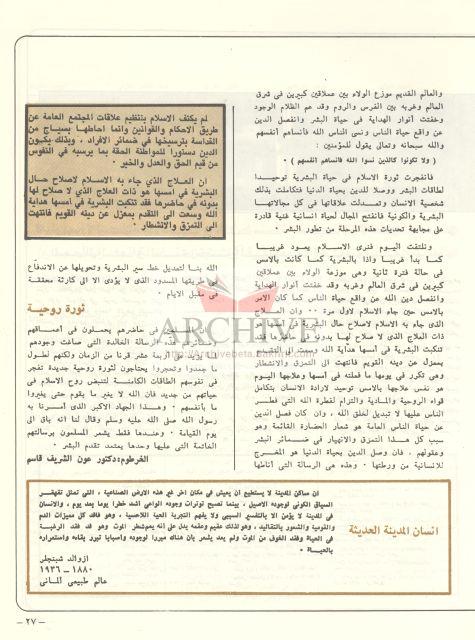 والعالم القديم موزع الولاء بين عملاقين كبيرين فى شرق
العالم وغربه بين الفرس والروم وقد عم الظلام الوجود
وخفتت أنوار الهداية فى حياة البشر وانفصل الدين
عن واقع حياة الناس ونسى الناس الله فأنساهم أنفسهم
والله سبحانه وتعالى يقول للمؤمنين :
( ولا تكونوا كالذين نسوا الله فأنساهم أنفسهم )
فانفجرت ثورة الاسلام فى حياة البشرية توحيدا
لطاقات البشر ووصلا للدين بحياة الدنيا فتكاملت بذلك
شخصية الانسان وتعدلت علاقاتها فى كل مجالاتها
البشرية والكونية فانفتح المجال لحياة انسانية غنية قادرة
على مجابهة تحديات هذه المرحلة من تطور البشر .
ونلتفت اليوم فنرى الاسلام يعود غريبا
كما بدأ غريبا واذا بالبشرية كما كانت بالامس
فى حالة فترة ثانية وهى موزعة الولاء بين عملاقين
كبيرين فى شرق العالم وغربه وقد خفتت أنوار الهداية
وانفصل دين الله عن واقع حياة الناس كما كان الامر
بالامس حين جاء الاسلام لاول مرة ·· وان العلاج
الذى جاء به الاسلام لاصلاح حال البشرية فى أمسها هو
ذات العلاج الذى لا صلاح لها بدونه فى حاضرها فقد
تنكبت البشرية فى أمسها هداية الله وسعت الى التقدم
بمعزل عن دينه القويم فانتهت الى التمزق والانشطار
وهى تكرر فى يومها ما فعلته فى أمسها وعلاجها اليوم
هو نفس علاجها بالامس توحيد لارادة الانسان بتكامل
قواه الروحية والمادية والتزام لفطرة الله التى فطر
الناس عليها لا تبديل لخلق الله ، وان كان فصل الدين
عن حياة الناس العامة هو شعار الحضارة القائمة وهو
سبب كل هذا التمزق والانهيار فى ضمائر البشر
وعقولهم ، فان وصل الدين بحياة الدنيا هو المخرج
للانسانية من ورطتها . وهذه هى الرسالة التى أناطها
لم يكتف الاسلام بتنظيم علاقات المجتمع العامة عن
طريق الاحكام والقوانين وانما احاطها بسياج من
القداسة بترسيخها فى ضمائر الافراد ، وبذلك يكون
الدين دستورا للمواطنة الحقة بما يرسبه فى النفوس
من قيم الحق والعدل والخير .
ان العلاج الذى جاء به الاسلام لاصلاح حال
البشرية فى امسها هو ذات العلاج الذى لا صلاح لها
بدونه فى حاضرها فقد تنكبت البشرية فى امسها هداية
الله وسعت الى التقدم بمعزل عن دينه القويم فانتهت
الى التمزق والانشطار .
الله بنا لتعديل خط سير البشرية وتحويلها عن الاندفاع
فى طريقها المسدود الذى لا يؤدى الا الى كارثة محققة
فى مقبل الايام .
ثورة روحية
فى حاضرهم يحملون فى أعماقهم
الرسالة الخالدة التى صاغت وجودهم
أربعة عشر قرنا من الزمان ولكنهم لطول
ما جمدوا وتحجروا يحتاجون لثورة روحية جديدة تفجر
فى نفوسهم الطاقات الكامنة لتنبض روح الاسلام فى
حياتهم من جديد فان الله لا يغير ما بقوم حتى يغيروا
ما بأنفسهم · وهذا الجهاد الاكبر الذى أمرنا به
رسول الله صلى الله عليه وسلم وقال لنا انه باق الى
يوم القيامة . وعندها فقط يشعر المسلمون برسالتهم
الخاتمة التى عليها وحدها يعتمد تقدم البشر .
الخرطوم: دكتور عون الشريف قاسم
ARCHIVE
انسان المدينة الحديثة
ان ساكن المدينة لا يستطيع ان يعيش فى مكان اخر غير هذه الارض الصناعية ، التى تمثل تقهقر
السباق الكونى لوجوده الاصيل ، بينما تصبح توترات وجوده الواعى أشد خطرا يوما بعد يوم ، والانسان
فى المدينة لا يؤمن الا بالتفسير السببى ولا يفهم التجربة الحية اللاحسية ، وهو فاقد كل مميزات الدم
والقومية والشعور بالتقاليد ، وهو لذلك عقيم وعقمه يدل على أنه يعم شطر الموت وهو قد فقد الرغبة
فى الحياة وفقد الخوف من الموت ولم يعد يشعر بأن هناك مبررا لوجوده وأسبابا تبرر بقاءه واستمراره
بالحياة .
ازوالد شبنجلر
١٨٨٠ – ١٩٣٦
عالم طبيعى المانى
– ٢٧ –